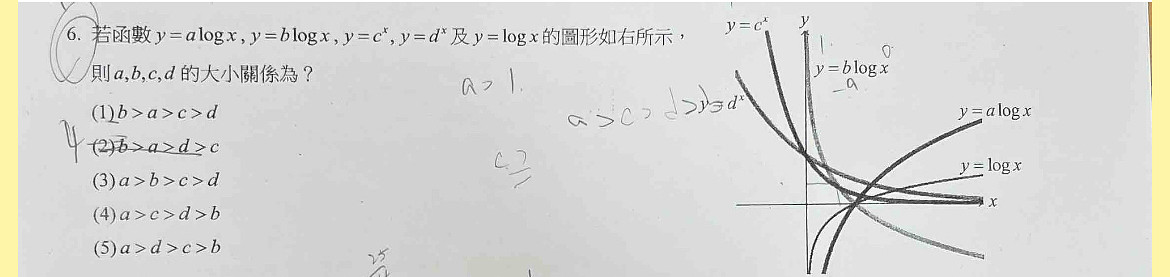 6. 若函數 y=alogx, y=blogx, y=cˣ, y=dˣ 及 y=logx 的圖形如右所示，
則 a,b,c,d 的大小關係為？
(1) b>a>c>d
(2) b>a>d>c
(3) a>b>c>d
(4) a>c>d>b
(5) a>d>c>b
a>1.
a>c>d>
c>
4
25
y=cˣ
y
y=blogx
a
y=dˣ
y=alogx
y=logx
x